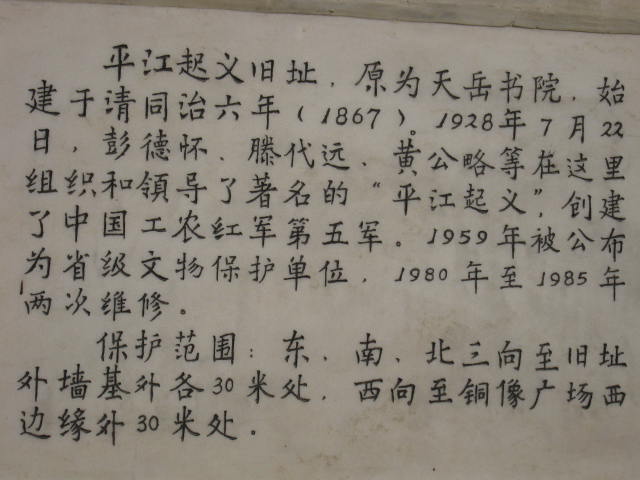 平江起义旧址，原为天岳书院，始
建于清同治六年（1867）。1928年7月22
日，彭德怀、滕代远、黄公略等在这里
组织和領导了著名的“平江起义”，创建
了中国工农红军第五军。1959年被公布
为省级文物保护单位，1980年至1985年
两次维修。
保护范围：东、南、北三向至旧址
外墙基外各30米处，西向至铜像广场西
边缘外30米处。